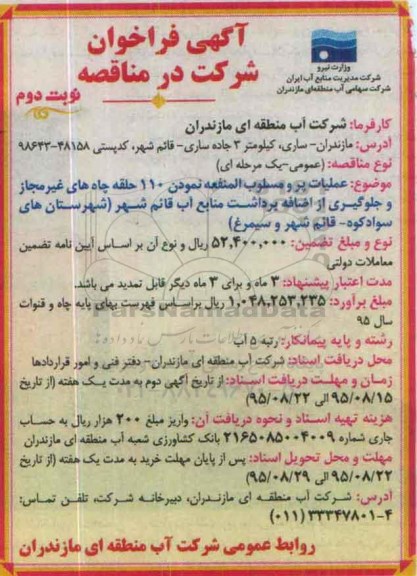 آگهی فراخوان
شرکت در مناقصه
نوبت دوم
وزارت نیرو
شرکت مدیریت منابع آب ایران
شرکت سهامی آب منطقه‌ای مازندران
کارفرما: شرکت آب منطقه ای مازندران
آدرس: مازندران- ساری، کیلومتر ۳ جاده ساری- قائم شهر، کدپستی ۴۸۱۵۸-۹۸۶۴۳
نوع مناقصه: (عمومی-یک مرحله ای)
موضوع: عملیات پر و مسلوب المنفعه نمودن ۱۱۰ حلقه چاه های غیرمجاز
و جلوگیری از اضافه برداشت منابع آب قائم شهر (شهرستان های
سوادکوه- قائم شهر و سیمرغ)
نوع و مبلغ تضمین: ۵۲,۴۰۰,۰۰۰ ریال و نوع آن بر اساس آیین نامه تضمین
معاملات دولتی
مدت اعتبار پیشنهاد: ۳ ماه و برای ۳ ماه دیگر قابل تمدید می باشد.
مبلغ برآورد: ۱,۰۴۸,۲۵۳,۲۳۵ ریال براساس فهرست بهای پایه چاه و قنوات
سال ۹۵
رشته و پایه پیمانکار: رتبه ۵ آب
محل دریافت اسناد: شرکت آب منطقه ای مازندران- دفتر فنی و امور قراردادها
زمان و مهلت دریافت اسناد: از تاریخ آگهی دوم به مدت یک هفته (از تاریخ
۹۵/۰۸/۱۵ الی ۹۵/۰۸/۲۲)
هزینه تهیه اسناد و نحوه دریافت آن: واریز مبلغ ۲۰۰ هزار ریال به حساب
جاری شماره ۲۱۶۵۰۸۵۰۰۴۰۰۹ بانک کشاورزی شعبه آب منطقه ای مازندران
مهلت و محل تحویل اسناد: پس از پایان مهلت خرید به مدت یک هفته (از تاریخ
۹۵/۰۸/۲۲ الی ۹۵/۰۸/۲۹)
آدرس: شرکت آب منطقه ای مازندران، دبیرخانه شرکت، تلفن تماس:
۴-۳۳۳۴۷۸۰۱ (۰۱۱)
روابط عمومی شرکت آب منطقه ای مازندران
ParsNamadData